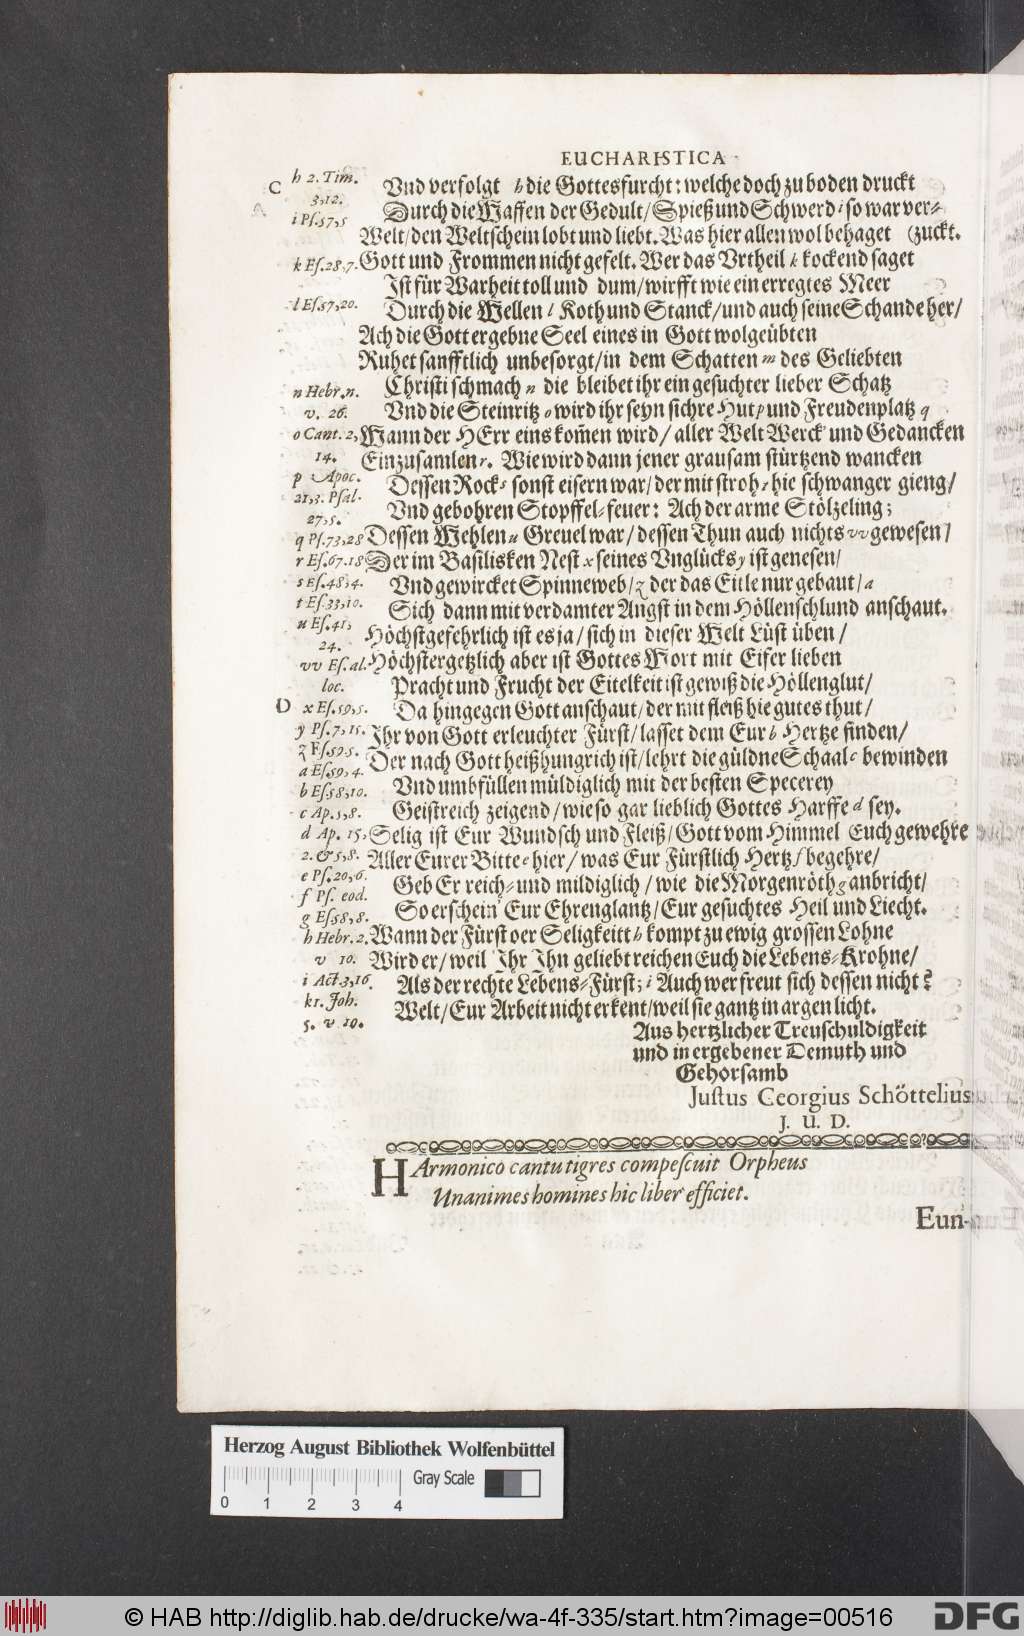 EUCHARISTICA
C
h 2. Tim.
3,12.
i Ps.57,5
k Es.28,7.
l Es.57,20.
n Hebr.n.
v. 26.
o Cant. 2,
14.
p Apoc.
21,3. Psal.
27,5.
q Ps.73,28
r Es.67.18
s Es.48,4.
t Es.33,10.
u Es.41,
24.
vv Es.al.
loc.
D
x Es.59,5.
y Ps.7,15.
z Es.59.5.
a Es.59,4.
b Es.58,10.
c Ap.5,8.
d Ap. 15,
2. & 5,8.
e Ps.20,6.
f Ps. eod.
g Es.58,8.
h Hebr.2.
v 10.
i Act.3,16.
k 1. Joh.
5. v 19.
Vnd verfolgt h die Gottesfurcht: welche doch zu boden druckt
Durch die Waffen der Gedult/ Spieß und Schwerd i so war ver-
Welt/ den Weltschein lobt und liebt. Was hier allen wol behaget (zuckt.
Gott und Frommen nicht gefelt. Wer das Vrtheil k kockend saget
Ist für Warheit toll und dum/ wirfft wie ein erregtes Meer
Durch die Wellen l Koth und Stanck/ und auch seine Schande her/
Ach die Gott ergebne Seel eines in Gott wolgeübten
Ruhet sanfftlich unbesorgt/ in dem Schatten m des Geliebten
Christi schmach n die bleibet ihr ein gesuchter lieber Schatz
Vnd die Steinritz o wird ihr seyn sichre Hut p und Freudenplatz q
Wann der HErr eins kom̃en wird/ aller Welt Werck und Gedancken
Einzusamlen r. Wie wird dann jener grausam stürtzend wancken
Dessen Rock s sonst eisern war/ der mit stroh t hie schwanger gieng/
Vnd gebohren Stopffel-feuer: Ach der arme Stölzeling;
Dessen Wehlen u Greuel war/ dessen Thun auch nichts vv gewesen/
Der im Basilisken Nest x seines Vnglücks y ist genesen/
Vnd gewircket Spinneweb/ z der das Eitle nur gebaut/ a
Sich dann mit verdamter Angst in dem Höllenschlund anschaut.
Höchstgefehrlich ist es ja/ sich in dieser Welt Lüst üben/
Höchstergetzlich aber ist Gottes Wort mit Eifer lieben
Pracht und Frucht der Eitelkeit ist gewiß die Höllenglut/
Da hingegen Gott anschaut/ der mit fleiß hie gutes thut/
Ihr von Gott erleuchter Fürst/ lasset dem Eur b Hertze finden/
Der nach Gott heißhungrich ist/ lehrt die güldne Schaal c bewinden
Vnd umbfüllen müldiglich mit der besten Specerey
Geistreich zeigend/ wie so gar lieblich Gottes Harffe d sey.
Selig ist Eur Wundsch und Fleiß/ Gott vom Himmel Euch gewehre
Aller Eurer Bitte e hier/ was Eur Fürstlich Hertz f begehre/
Geb Er reich- und mildiglich/ wie die Morgenröth g anbricht/
So erschein Eur Ehrenglantz/ Eur gesuchtes Heil und Liecht.
Wann der Fürst der Seligkeitt h kompt zu ewig grossen Lohne
Wird er/ weil Ihr Ihn geliebt reichen Euch die Lebens-Krohne/
Als der rechte Lebens-Fürst; i Auch wer freut sich dessen nicht?
Welt/ Eur Arbeit nicht erkent/ weil sie gantz in argen licht.
Aus hertzlicher Treuschuldigkeit
und in ergebener Demuth und
Gehorsamb
Justus Georgius Schöttelius
J. U. D.
HArmonico cantu tigres compescuit Orpheus
Unanimes homines hic liber efficiet.
Eun-
Herzog August Bibliothek Wolfenbüttel
Gray Scale
0 1 2 3 4
© HAB http://diglib.hab.de/drucke/wa-4f-335/start.htm?image=00516
DFG